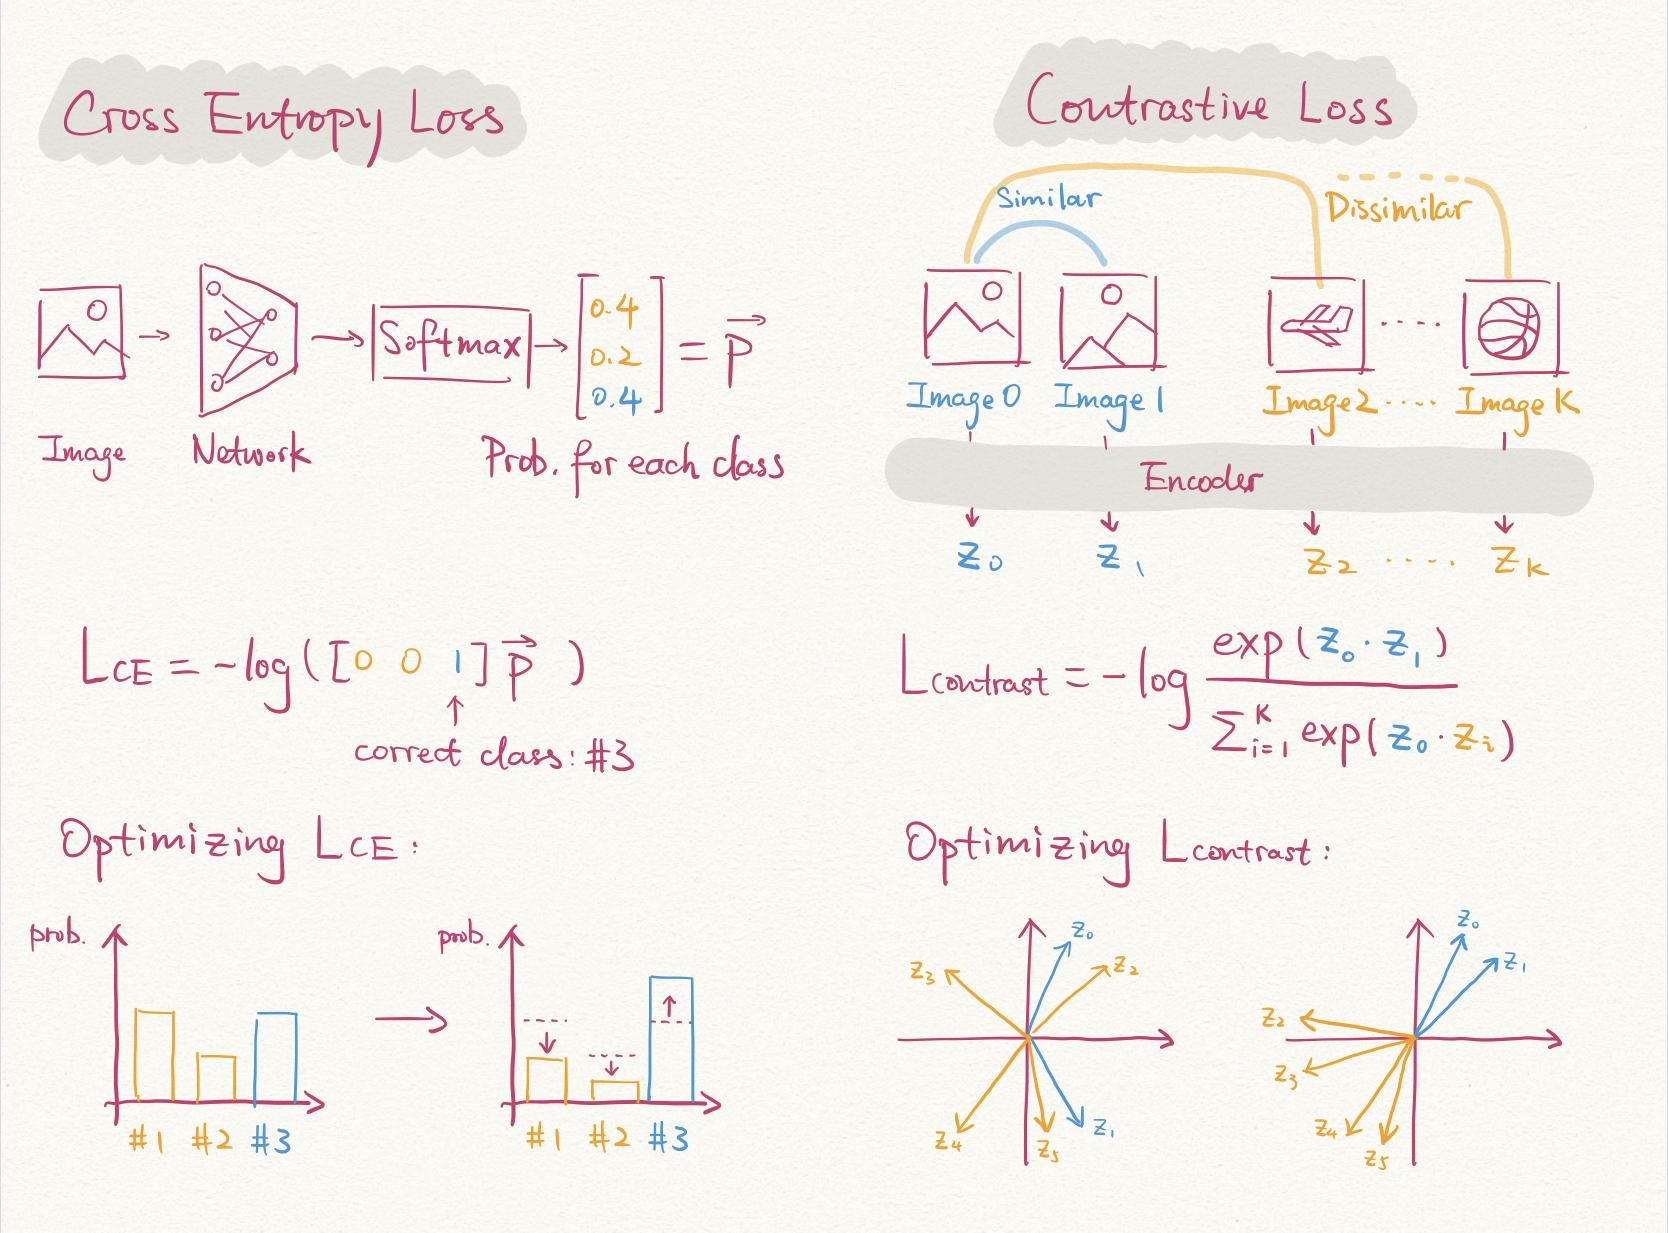 Cross Entropy Loss
Softmax
0.4
0.2
0.4
= P
Image
Network
Prob. for each class
LCE = -log([0 0 1] P )
↑
correct class: #3
Optimizing LCE:
prob.
#1 #2 #3
prob.
#1 #2 #3
Contrastive Loss
Similar
Dissimilar
Image 0 Image 1 Image 2 ..... Image K
Encoder
z0 z1 z2 ..... zK
Lcontrast = -log exp(z0 · z1)
∑ K i=1 exp(z0 · zi)
Optimizing Lcontrast:
z0
z2
z3
z4
z5
z1
z0
z1
z2
z3
z4
z5